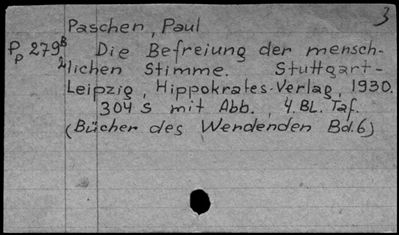 3
Paschen, Paul
Pp 279 B/2 Die Befreiung der mensch-
lichen Stimme. Stuttgart-
Leipzig, Hippokrates-Verlag, 1930.
304 S mit Abb., 4. BL. Taf.
(Bücher des Werdenden Bd.6)